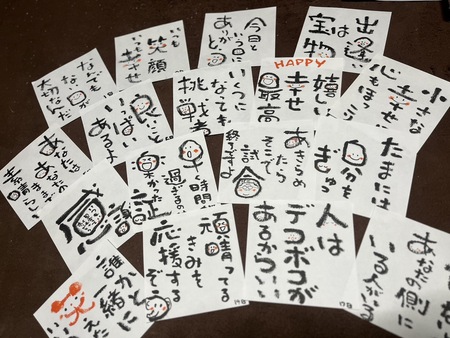 出逢い
は
宝物
今日と
いう日に
ありがとう
いつも
笑顔
いつも幸せ
なんでも
ない日が
大切なんだ
小さな
幸せ
HAPPY
嬉しい
幸せ
最高
いくつに
なっても
挑戦者
良いこと
いっぱい
あるよ
あなたは
たまには
自分を
ぎゅっ
あきらめ
たら
そこで
試合
終了ですよ
時間が
過ぎるのは
証
感謝
人は
デコボコが
あるからいい
頑晴ってる
きみを
応援する
ぞ
あなたの側に
いる人がいる
誰かと
一緒に